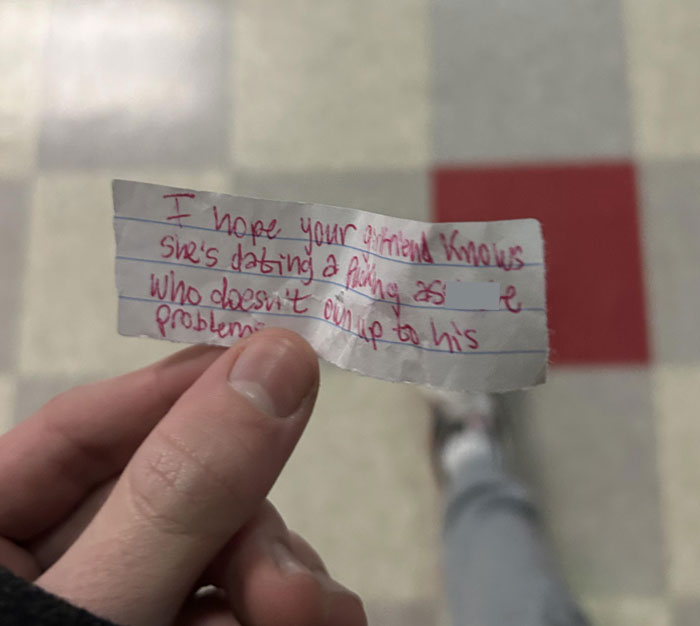 I hope your girlfriend knows
she's dating a fucking as e
who doesn't own up to his
problems